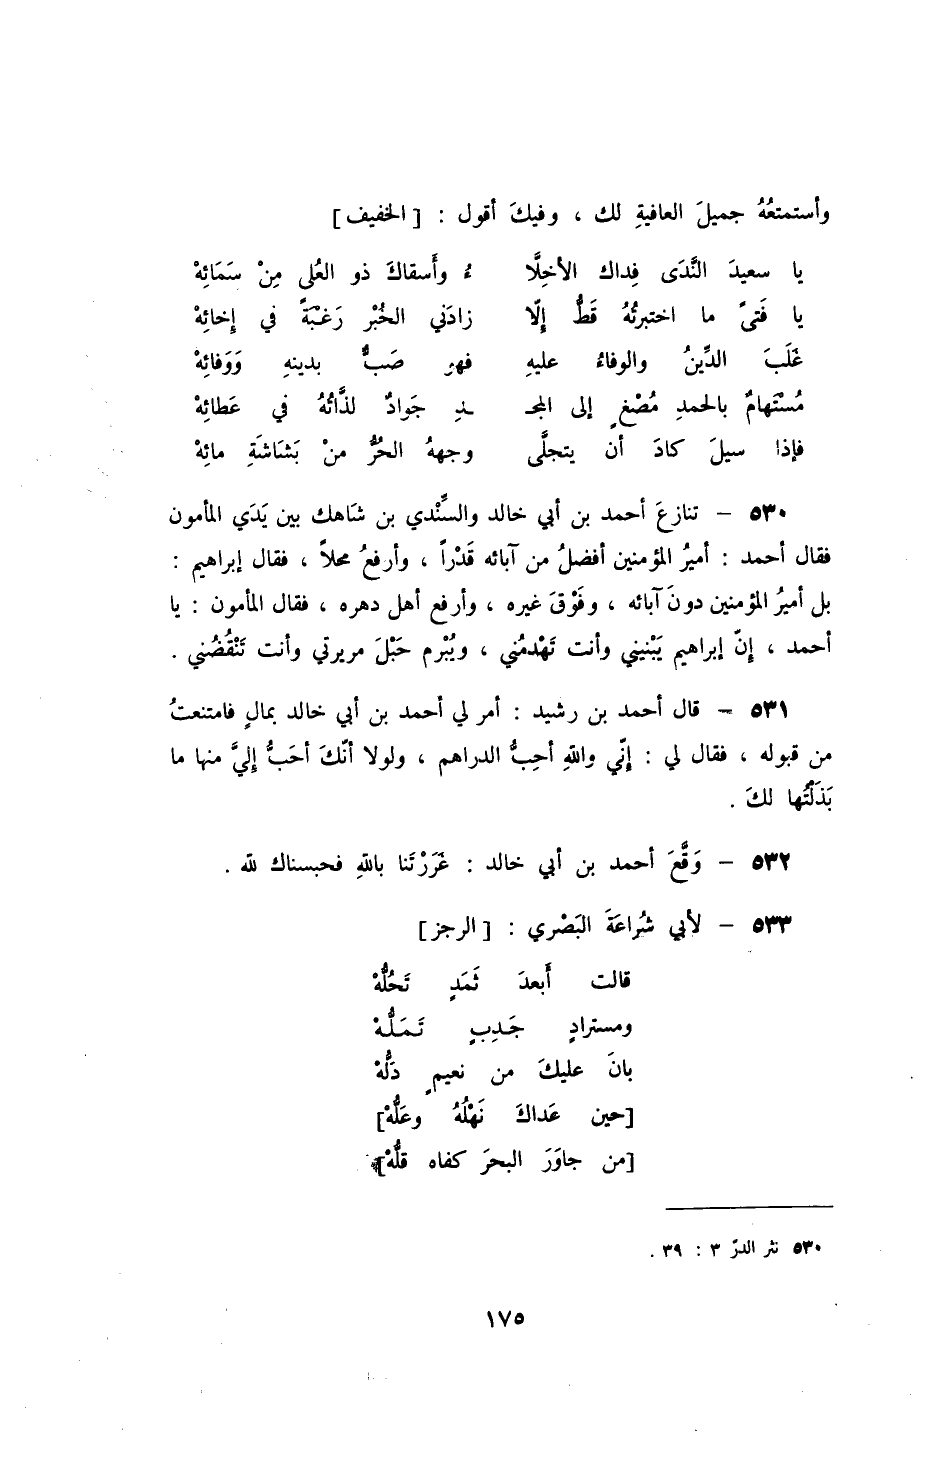 وأستمتعُهُ جميلَ العافيةِ لك ، وفيكَ أقول : [ الخفيف ]
يا سعيدَ النَّدَى فِداك الأخِلَّا ءُ وأَسقاكَ ذو العُلى مِنْ سَمَائِهْ
يا فَتىً ما اختبرتُهُ قَطُّ إلّا زادَني الخُبْر رَغبَةً في إخائِهْ
غَلَبَ الدِّينُ والوفاءُ عليهِ فهو صَبٌّ بدينهِ وَوَفائِهْ
مُسْتَهامٌ بالحمدِ مُصْغٍ إلى المجـ ـدِ جَوادٌ لذَّاتُهُ في عَطائِهْ
فإذا سيلَ كادَ أن يتجلَّى وجههُ الحُرُّ منْ بَشَاشَةِ مائِهْ
٥٣٠ – تنازعَ أحمد بن أبي خالد والسِّنْدي بن شاهك بين يَدَي المأمون
فقال أحمد : أميرُ المؤمنين أفضلُ من آبائه قَدْراً ، وأرفعُ محلاً ، فقال إبراهيم :
بل أميرُ المؤمنين دونَ آبائه ، وفَوْقَ غيره ، وأرفع أهل دهره ، فقال المأمون : يا
أحمد ، إنّ إبراهيم يَبْنيني وأنت تَهْدمُني ، ويُبْرم حَبْلَ مريرتي وأنت تَنْقُضُني .
٥٣١ – قال أحمد بن رشيد : أمر لي أحمد بن أبي خالد بمالٍ فامتنعتُ
من قبوله ، فقال لي : إنّي واللهِ أحِبُّ الدراهم ، ولولا أنّكَ أحَبُّ إليَّ منها ما
بَذَلْتُها لكَ .
٥٣٢ – وَقَّعَ أحمد بن أبي خالد : غَرَرْتَنا باللهِ فحبسناك لله .
٥٣٣ – لأبي شُراعَةَ البَصْري : [ الرجز ]
قالت أَبعدَ ثَمَدٍ تَحُلُّهْ
ومسترادٍ جَدبٍ تَمَلُّهْ
بانَ عليكَ من نعيمٍ دَلُّهْ
[حين عَداكَ نَهْلُهُ وعَلُّهْ]
[من جاوَرَ البحرَ كفاه قلُّهْ]
٥٣٠ نثر الدرّ ٣ : ٣٩ .
١٧٥